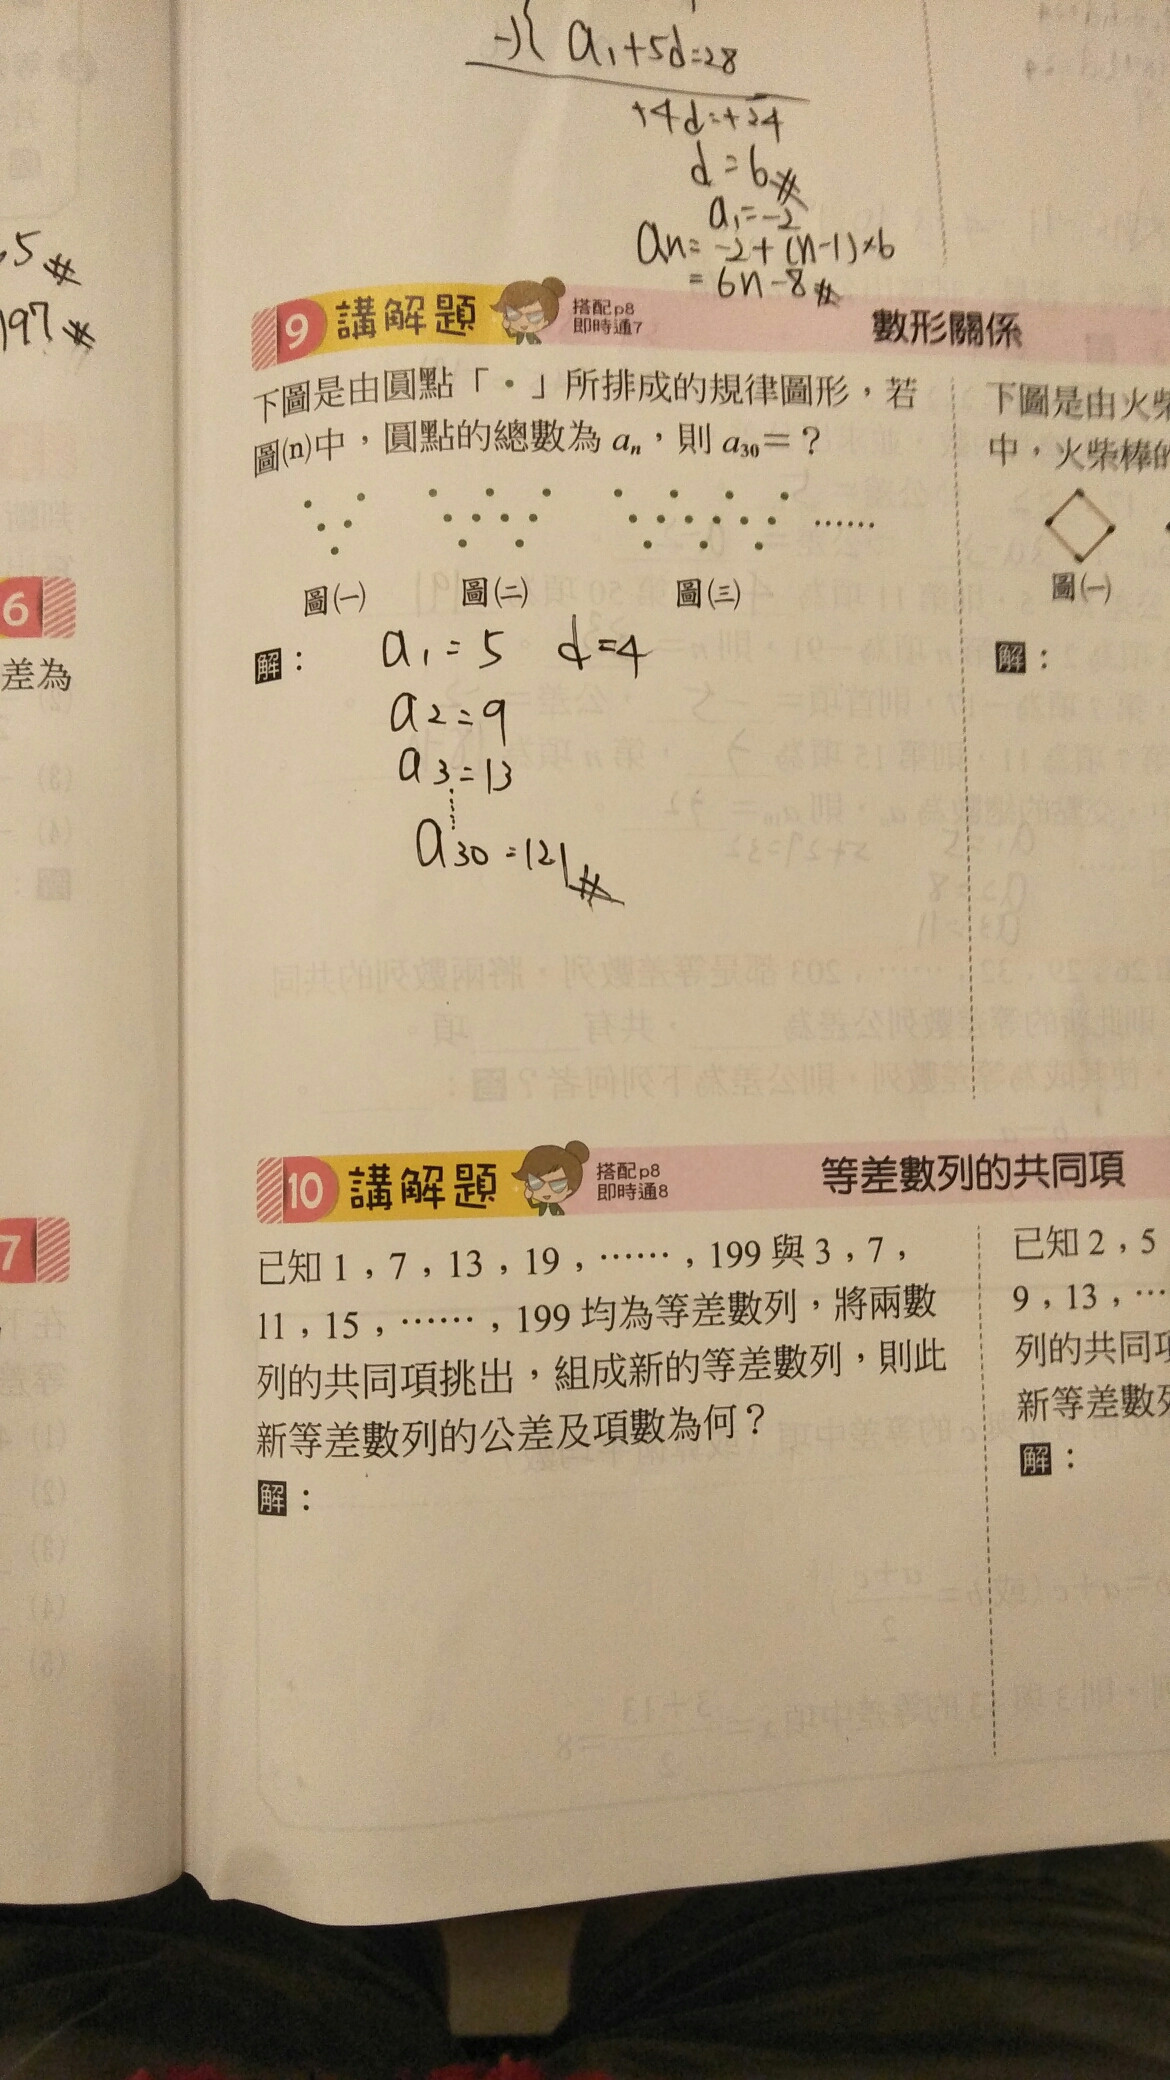 -){ a₁+5d=28
+4d=+24
d=6#
a₁=-2
an=-2+(n-1)×6
=6n-8#
5#
197#
9 講解題 搭配p8 數形關係
即時通7
下圖是由圓點「·」所排成的規律圖形，若
圖(n)中，圓點的總數為 aₙ，則 a₃₀=？
……
圖(一) 圖(二) 圖(三)
解：
a₁=5 d=4
a2=9
a3=13
a30=121#
下圖是由火柴
中，火柴棒的
圖(一)
解：
6
差為
7
10 講解題 搭配p8 等差數列的共同項
即時通8
已知 1，7，13，19，……，199 與 3，7，
11，15，……，199 均為等差數列，將兩數
列的共同項挑出，組成新的等差數列，則此
新等差數列的公差及項數為何？
解：
已知 2，5
9，13，…
列的共同項
新等差數列
解：